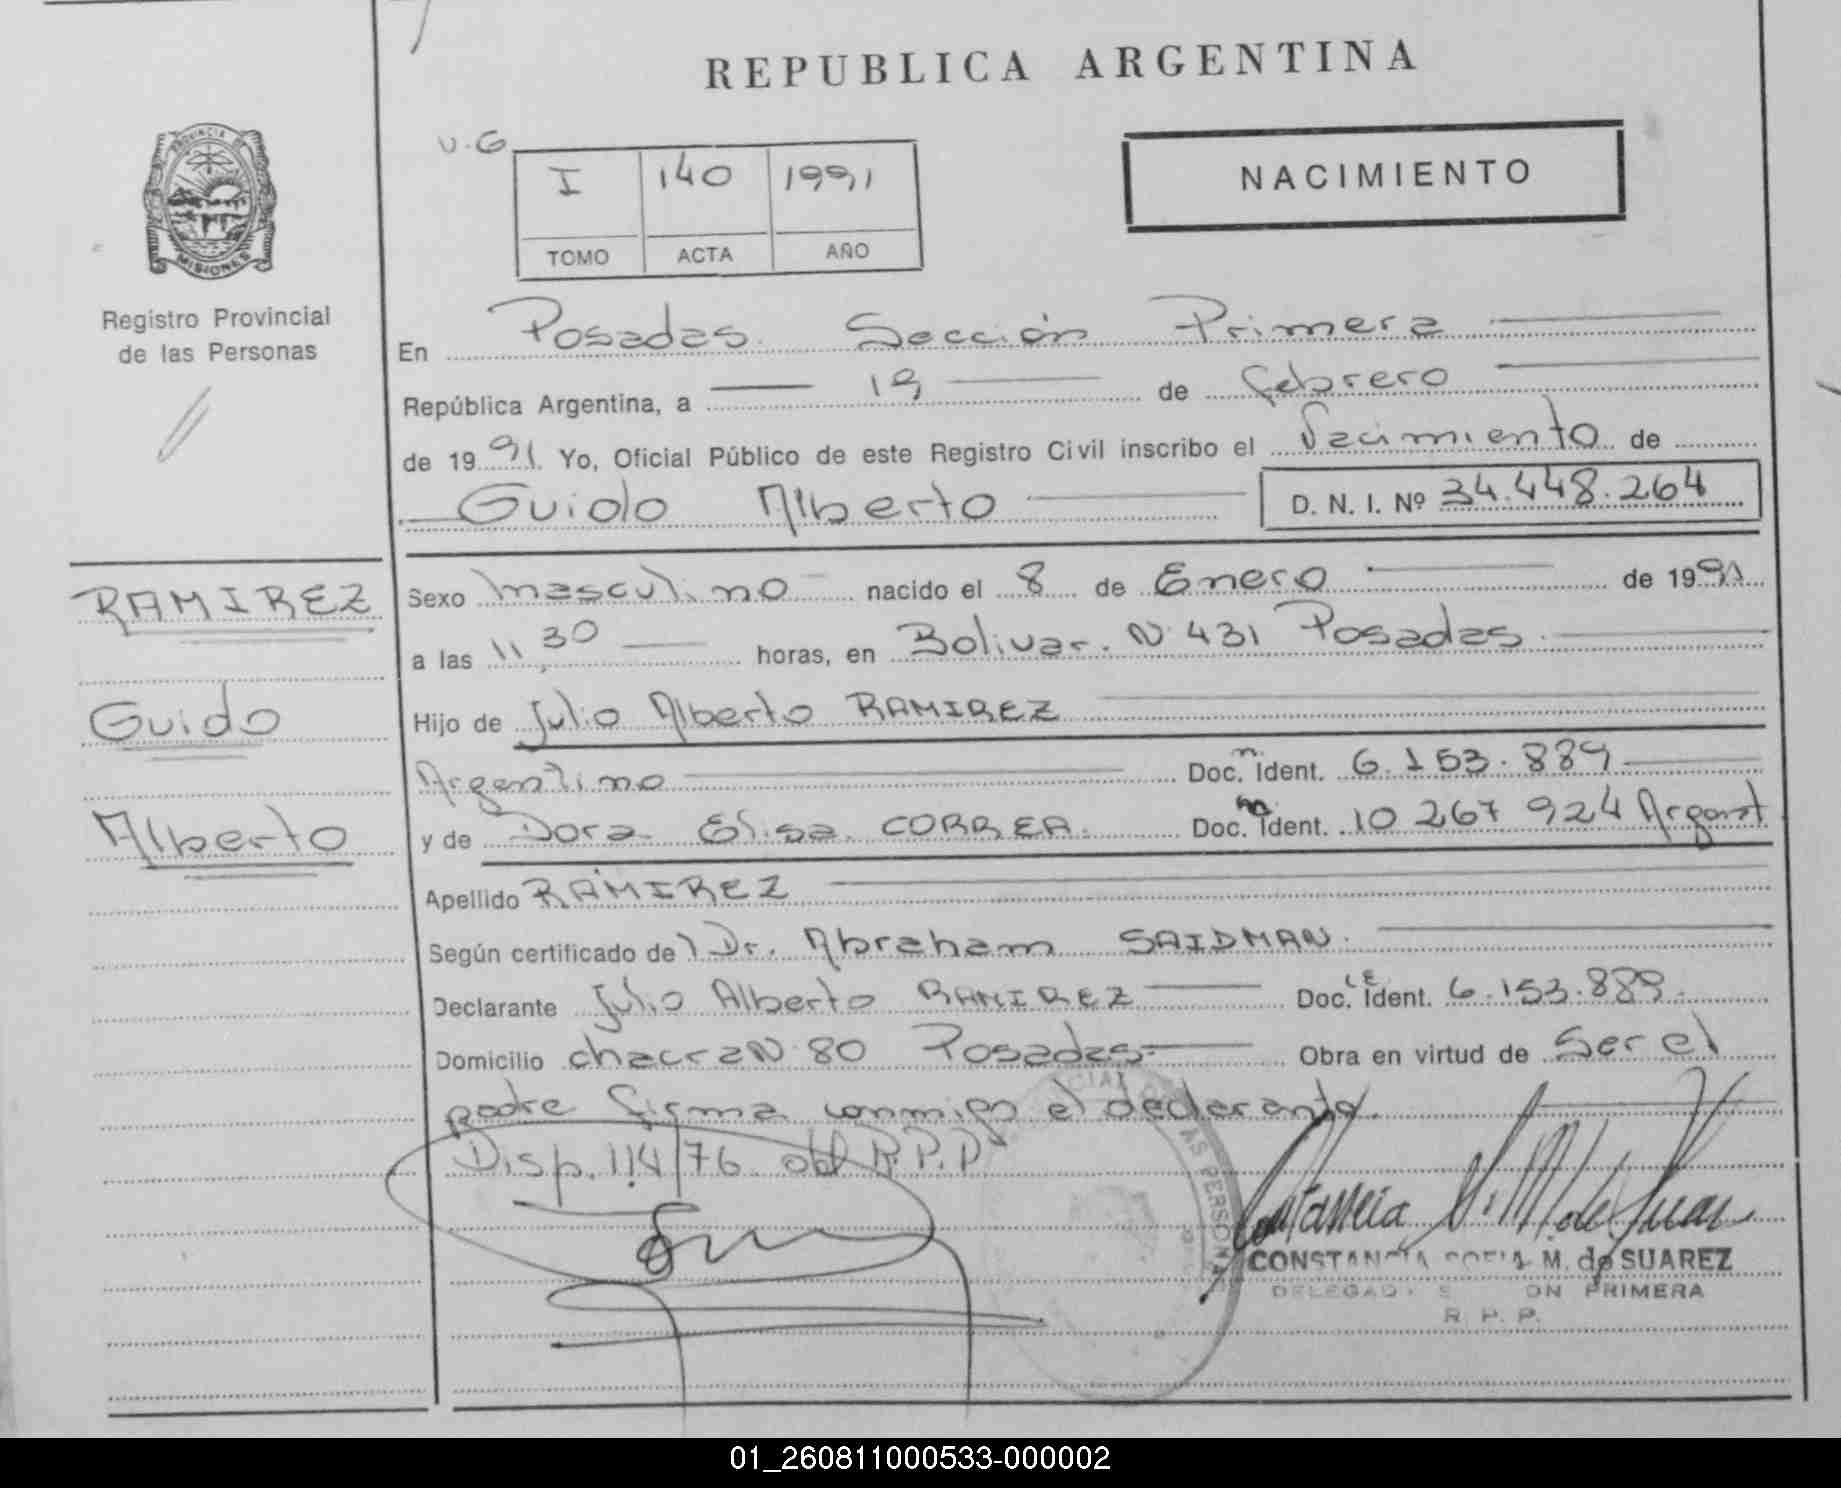 REPUBLICA ARGENTINA
U.G
I 140 1991
TOMO ACTA AÑO
NACIMIENTO
PROVINCIA DE
MISIONES
Registro Provincial
de las Personas
En Posadas Sección Primera
República Argentina, a 19 de febrero
de 1991 Yo, Oficial Público de este Registro Civil inscribo el Nacimiento de
Guido Alberto D. N. I. Nº 34.448.264
RAMIREZ
Guido
Alberto
Sexo masculino nacido el 8 de Enero de 1991
a las 11,30 horas, en Bolivar. N 431 Posadas
Hijo de Julio Alberto RAMIREZ
Argentino Doc. Ident. 6.153.889
y de Dora Elisa CORREA. Doc. Ident. 10 267 924 Argent
Apellido RAMIREZ
Según certificado de Dr. Abraham SAIDMAN.
Declarante Julio Alberto RAMIREZ Doc. LE Ident. 6.153.889.
Domicilio chacra N 80 Posadas Obra en virtud de Ser el
padre firma conmigo el declarante.
Disp. 114/76 del R.P.P
CONSTANCIA SOFIA M. de SUAREZ
PRIMERA
R. P. P.
01_260811000533-000002